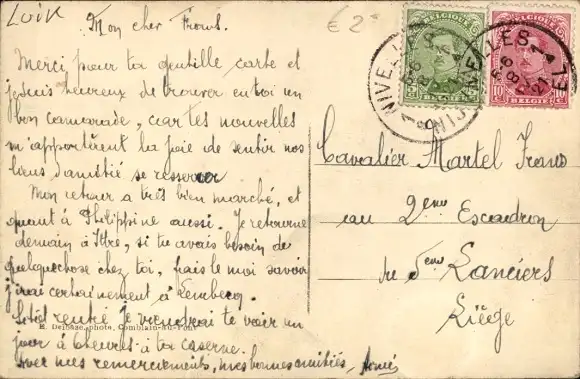 Luik
€ 2
Mon cher Frans.
Merci pour ta gentille carte et
je suis heureux de trouver en toi un
bon camarade, car tes nouvelles
m'apportèrent la joie de sentir nos
liens d'amitié se resserrer
Mon retour a très bien marché, et
quant à Philippine aussi. Je retourne
demain à Ittre, si tu avais besoin de
quelquechose chez toi, fais le moi savoir
j'irai certainement à Lembecq.
Sitôt rentré je viendrai te voir un
jour à heures à ta caserne.
Avec mes remerciements, mes bonnes amitiés
E. Delbase, photo, Comblain-au-Pont
BELGIQUE
5
BELGIE
BELGIQUE
10 10
BELGIE
NIVELLES
NIJVEL
Cavalier Martel Frans
au 2eme Escadron
du 5eme Lanciers
Liège